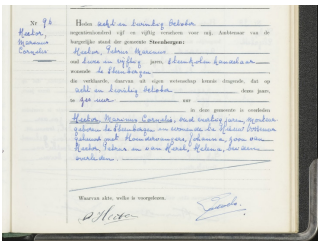 Nr 96
Heeker,
Marinus
Cornelis
Heden acht en twintig October
negentienhonderd vijf en vijftig verscheen voor mij, Ambtenaar van de
burgerlijke stand der gemeente Steenbergen:
Heeker, Petrus Marinus
oud twee en vijftig jaren, steenkolen handelaar
wonende te Steenbergen
die verklaarde, daarvan uit eigen wetenschap kennis dragende, dat op
acht en twintig October dezes jaars,
te uur
in deze gemeente is overleden
Heeker Marinus Cornelis, oud veertig jaren, monteur
geboren te Steenbergen en wonende te
gehuwd met Johanna, zoon van
Heeker, Petrus en van Helena, beiden
overleden.
Waarvan akte, welke is voorgelezen.
P. Heeker